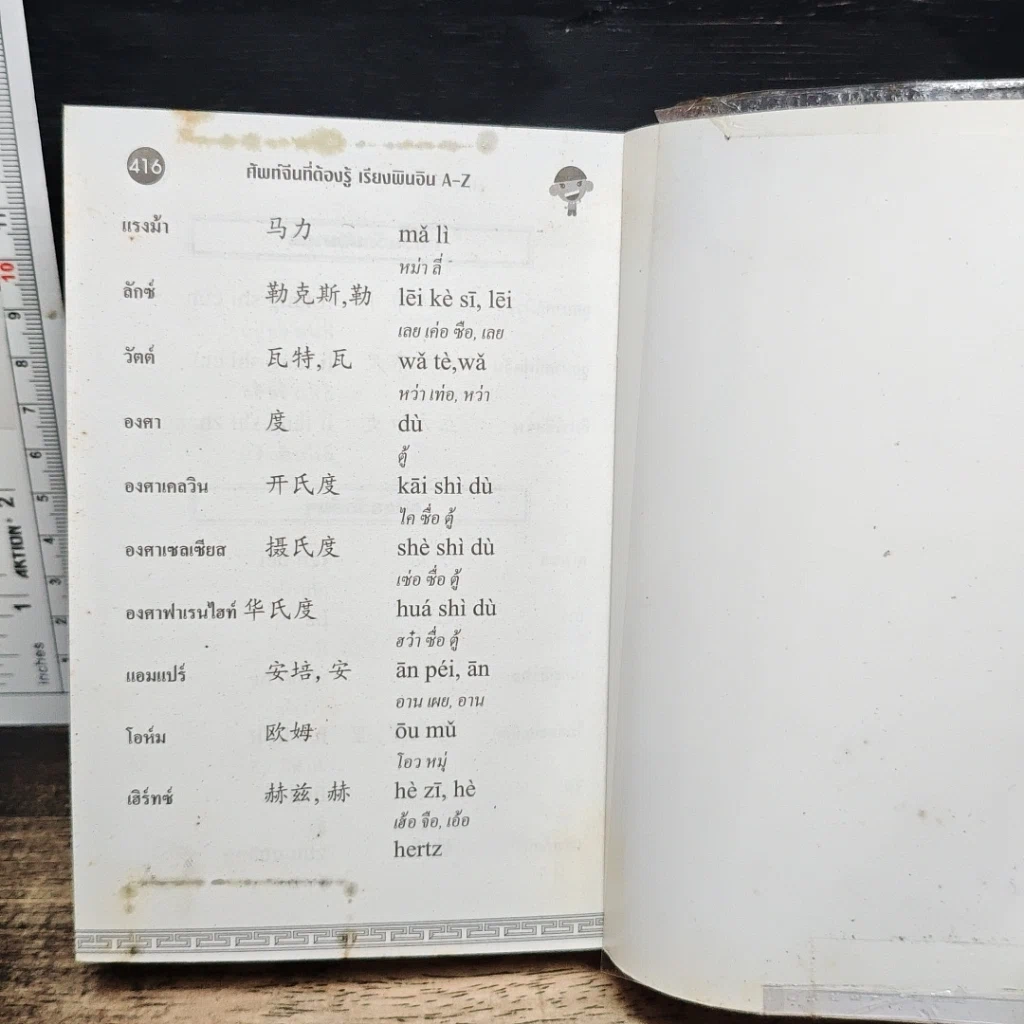 416
ศัพท์จีนที่ต้องรู้ เรียงพินอิน A-Z
แรงม้า 马力 mǎ lì
หม่า ลี่
ลักซ์ 勒克斯,勒 lēi kè sī, lēi
เลย เค่อ ซือ, เลย
วัตต์ 瓦特, 瓦 wǎ tè,wǎ
หว่า เท่อ, หว่า
องศา 度 dù
ตู้
องศาเคลวิน 开氏度 kāi shì dù
ไค ซื่อ ตู้
องศาเซลเซียส 摄氏度 shè shì dù
เซ่อ ซื่อ ตู้
องศาฟาเรนไฮท์ 华氏度 huá shì dù
ฮว๋า ซื่อ ตู้
แอมแปร์ 安培, 安 ān péi, ān
อาน เผย, อาน
โอห์ม 欧姆 ōu mǔ
โอว หมุ่
เฮิร์ทซ์ 赫兹, 赫 hè zī, hè
เฮ้อ จือ, เอ้อ
hertz
10
9
8
7
6
5
4
3
2
1
2
AKTION
1
inches